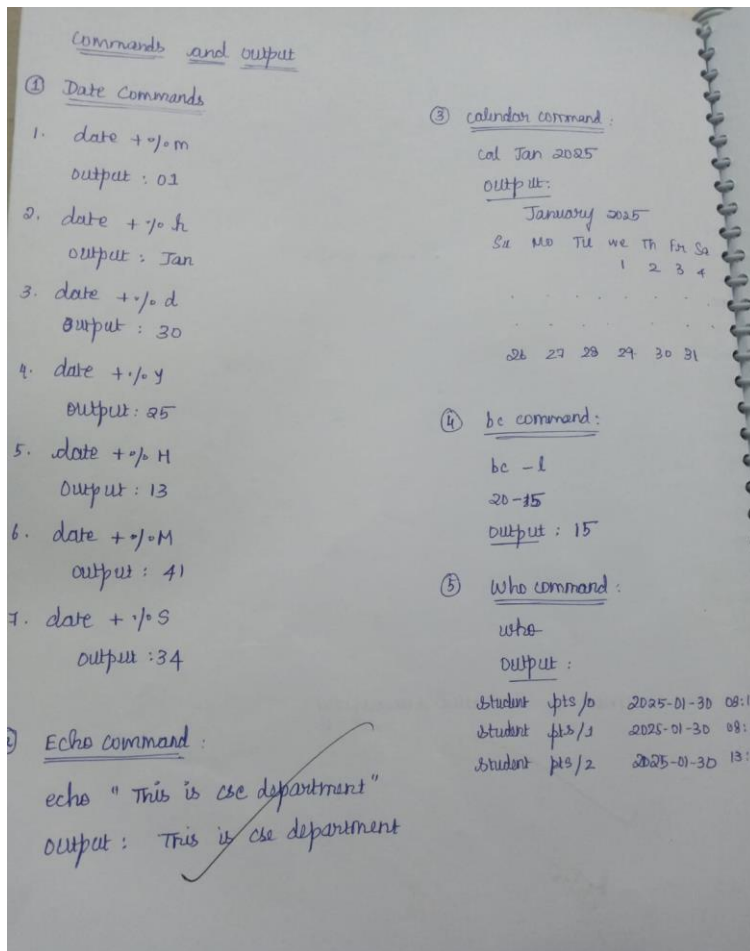 Commands and output
① Date Commands
1. date +%m
output : 01
2. date +%h
output : Jan
3. date +%d
output : 30
4. date +%y
output : 25
5. date +%H
Output : 13
6. date +%M
output : 41
7. date +%S
output : 34
Echo command :
echo "This is cse department"
output : This is cse department
③ calendar command :
cal Jan 2025
output :
January 2025
Su Mo Tu we Th Fr Sa
1 2 3 4
. . . . . . .
. . . . . . .
26 27 28 29 30 31
④ bc command :
bc -l
20-15
output : 15
⑤ Who command :
who
output :
student pts/0 2025-01-30 08:1
student pts/1 2025-01-30 08:
student pts/2 2025-01-30 13: